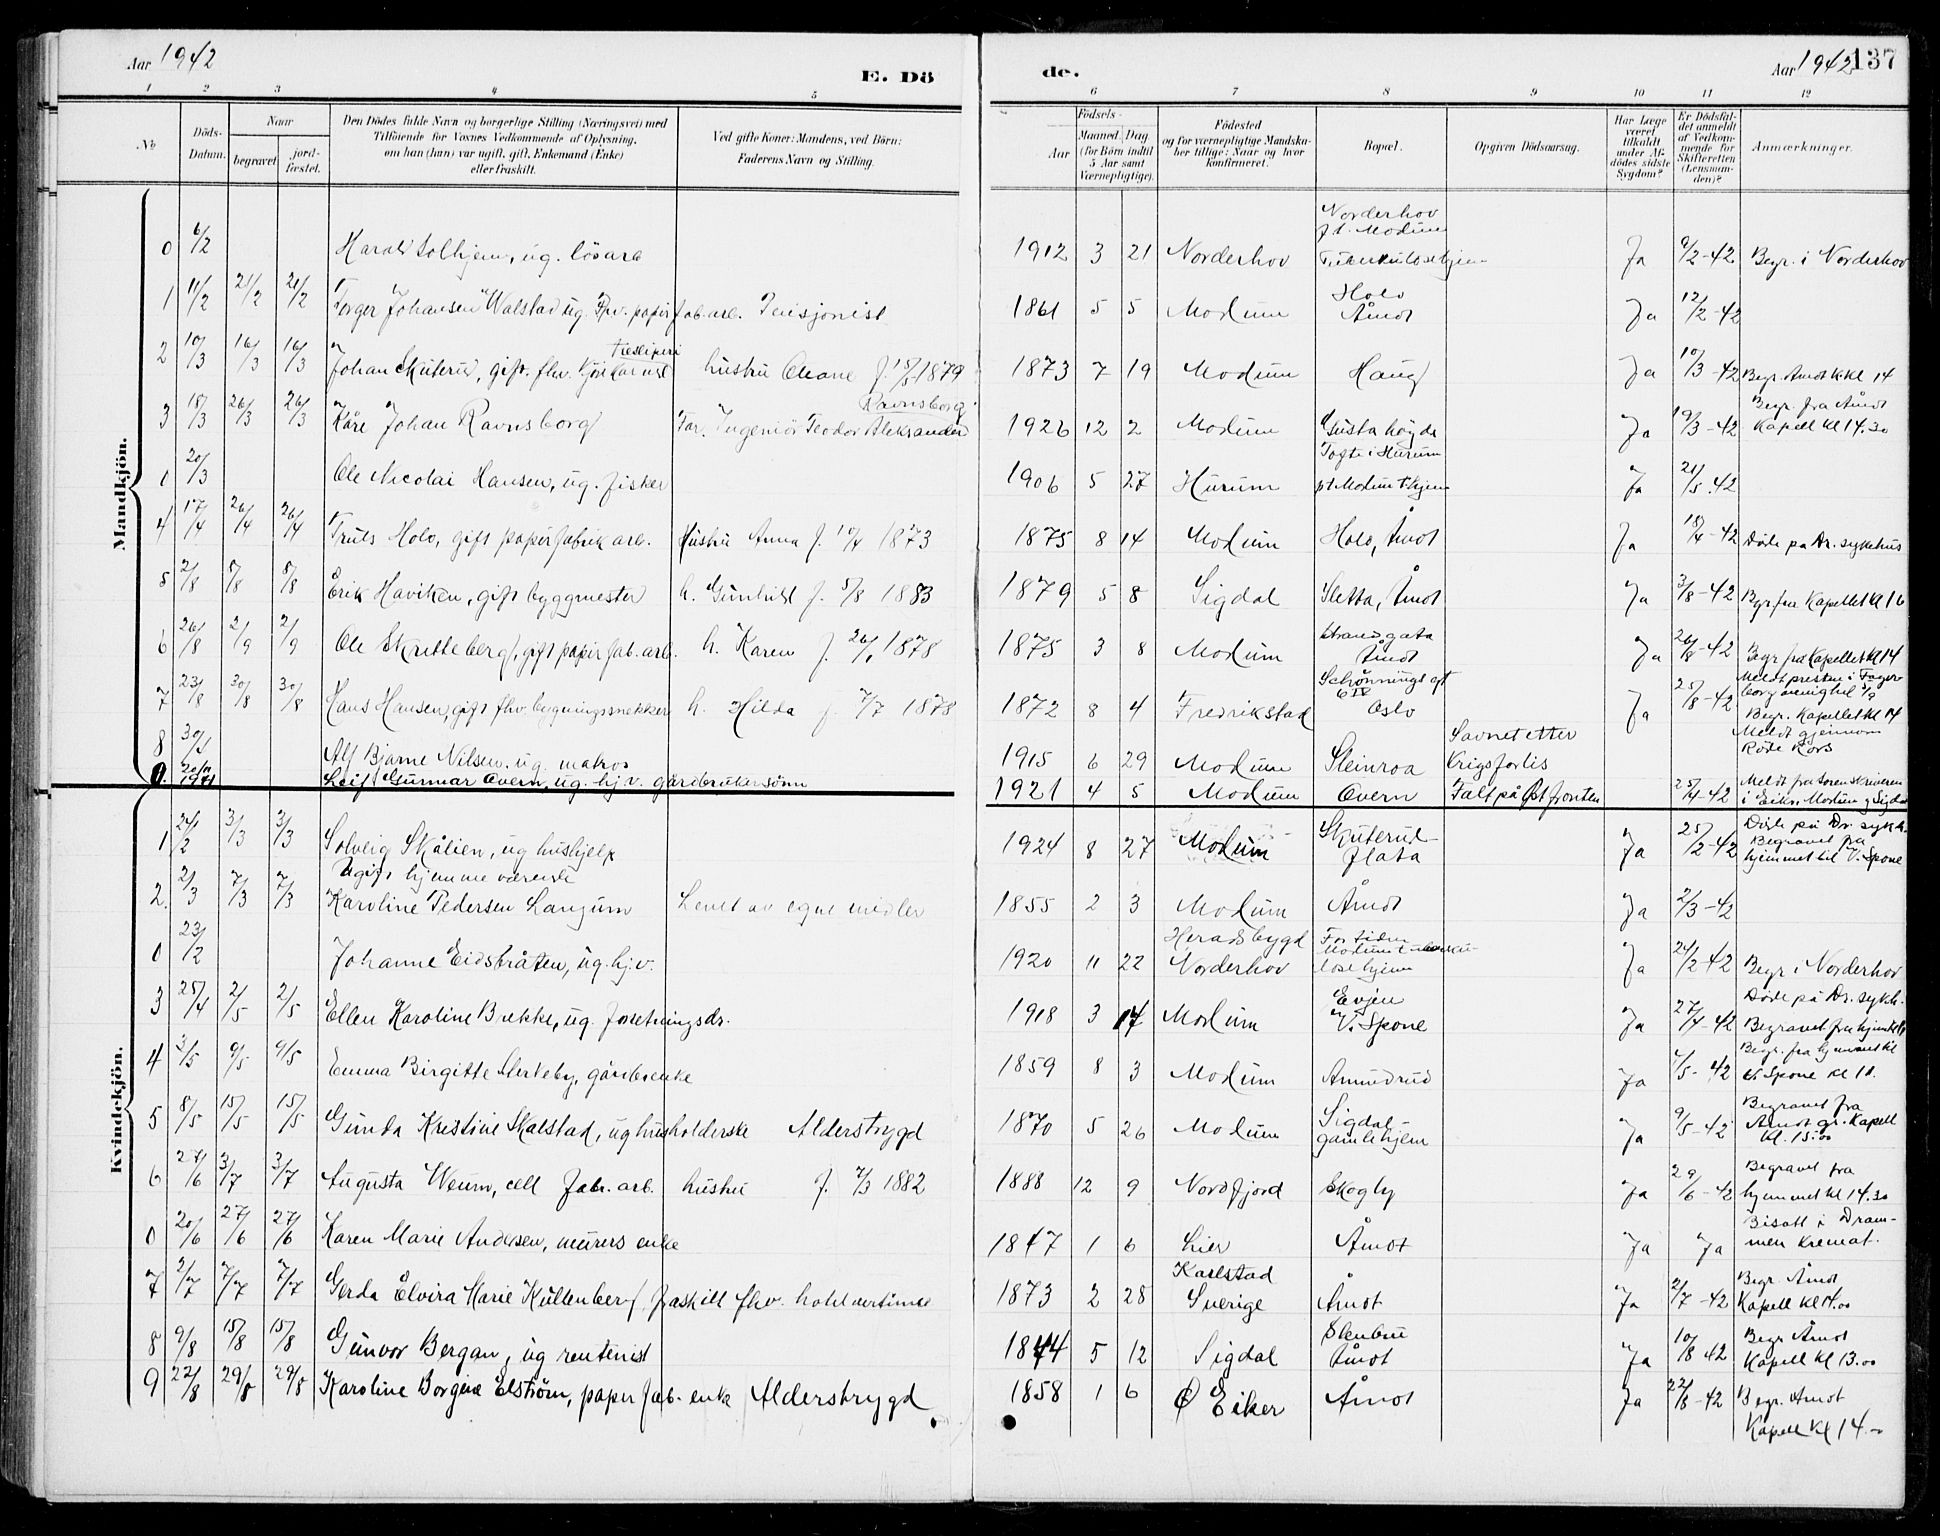 Aar 1942
E. Dö
de.
Aar 1942
137
1 2 3 4 5 6 7 8 9 10 11 12
No
Döds-Datum.
Naar
begravet
jord-fæstet.
Den Dödes fulde Navn og borgerlige Stilling (Næringsvei) med
Tilföiende for Voxnes Vedkommende af Oplysning,
om han (hun) var ugift, gift, Enkemand (Enke)
eller fraskilt.
Ved gifte Koner: Mandens, ved Börn:
Faderens Navn og Stilling.
Födsels-
Aar
Maaned. Dag.
(for Börn indtil
5 Aar samt
Værnepligtige).
Födested
og for værnepligtige Mandska-
ber tillige: Naar og hvor
konfirmeret.
Bopæl.
Opgiven Dödsaarsag.
Har Læge
været
tilkaldt
under Af-
dödes sidste
Sygdom?
Er Dödsfal-
det anmeldt
af Vedkom-
mende for
Skifteretten
(Lensman-
den)?
Anmærkninger.
Mandkjön.
0 6/2 Harald Solhjem, ug. lösarb 1912 3 21 Norderhov Norderhov p.t. Modum Tuberkulosehjem Ja 9/2-42 Begr. i Norderhov
1 11/2 21/2 21/2 Torger Johansen Walstad ug. Fhv. papirfab.arb. Pensjonist 1861 5 5 Modum Holo Åmot Ja 12/2-42
2 10/3 16/3 16/3 Johan Skuterud, gift. fhv. tresliperi hustru Oleane f. 1879 1873 7 19 Modum Haug Ja 10/3-42 Begr. Åmot k. kl 14
3 18/3 26/3 26/3 Kåre Johan Ravnsborg Far. Ingeniör Teodor Aleksander Ravnsborg 1926 12 2 Modum Gustahögda Ja 19/3-42 Begr. fra Åmot Kapell kl 14.30
0 20/3 Ole Nicolai Hansen, ug. fisker 1906 5 27 Hurum Tofte i Hurum pt Modum t.hjem Ja 21/5.42
4 17/4 26/4 26/4 Truls Holo, gift papirfabrik arb. Hustru Anna f. 10/4 1873 1875 8 14 Modum Holo, Åmot Ja 18/4-42 Döde på Dr. sykehus
5 2/8 8/8 8/8 Erik Haviken, gift byggmester h. Gunhild f. 5/8 1883 1879 5 8 Sigdal Sletta, Åmot Ja 3/8-42 Begr fra Kapellet kl 16
6 26/8 2/9 2/9 Ole Skretteberg, gift papirfab.arb. h. Karen f. 26/1 1878 1875 3 8 Modum Strandgata Åmot Ja 26/8-42 Begr fra Kapellet kl 14
7 23/8 30/8 30/8 Hans Hansen, gift fhv. bygningssnekker h. Hilda f. 7/7 1878 1872 8 4 Fredrikstad Schönnings gt 6 IV Oslo Ja 25/8-42 Meldt presten i Fagerborg menighet Begr. Kapellet kl 14
8 Alf Bjarne Nilsen, ug. matros 1915 6 29 Modum Steinroa Savnet etter Krigsforlis Meldt gjennom Röde Kors
1941 Leif Gunnar Overn, ug. hj.v. gårdbrukersönn 1921 4 5 Modum Overn Falt på Östfronten 25/4-42 Meldt fra Sorenskriveren i Eiker, Modum og Sigdal
Kvindekjön.
1 24/2 3/3 3/3 Solveig Skålien, ug hushjelp 1924 8 27 Modum Skuterud-flata Ja 25/2-42 Döde på Dr. sykh. Begravet fra hjemmet til V. Spone
2. 2/3 7/3 7/3 Ugift hjemmeværende Karoline Pedersen Langum Levet av egne midler 1855 2 3 Modum Åmot Ja 2/3-42
0 23/2 Johanne Eidsbråten, ug. hj.v. 1920 11 22 Heradsbygd Norderhov For tiden Modum tuberkulosehjem Ja 24/2 42 Begr i Norderhov
3 25/4 2/5 2/5 Ellen Karoline Brekke, ug. forretningsdr. 1918 3 14 Modum Evjen V. Spone Ja 27/4-42 Döde på Dr. sykh. Begravet fra hjemmet
4 3/5 9/5 9/5 Emma Birgitte Sterteby, gårdbr.enke 1859 8 3 Modum Amundrud Ja 4/5-42 Begr. fra hjemmet til V. Spone kl 11.
5 8/5 15/5 15/5 Gunda Kristine Skalstad, ug husholderske Alderstrygd 1870 5 26 Modum Sigdal-gamlehjem Ja 9/5-42 Begravet fra Åmot gr. Kapell kl. 15.00
6 27/6 3/7 3/7 Augusta Weum, cell fabr. arb. hustru f. 7/3 1882 1888 12 9 Nordfjord Skogly Ja 29/6-42 Begravet fra hjemmet kl 14.30
0 20/6 27/6 27/6 Karen Marie Andersen, murers enke 1847 1 6 Lier Åmot Ja Ja Bisatt i Drammen Kremat.
7 2/7 7/7 7/7 Gerda Elvira Marie Kullenberg fraskilt fhv. hotel vertinne 1873 2 28 Karlstad Sverige Åmot Ja 2/7-42 Begr. Åmot Kapell kl 14.00
8 9/8 15/8 15/8 Gunvor Bergan, ug rentenist 1844 5 12 Sigdal Stenbru Åmot Ja 10/8 42 Begr Åmot Kapell kl 13.00
9 22/8 29/8 29/8 Karoline Borgine Elström, papirfab. enke Alderstrygd 1858 1 6 Ö Eiker Åmot Ja 22/8-42 Begr. Åmot Kapell kl 14.-